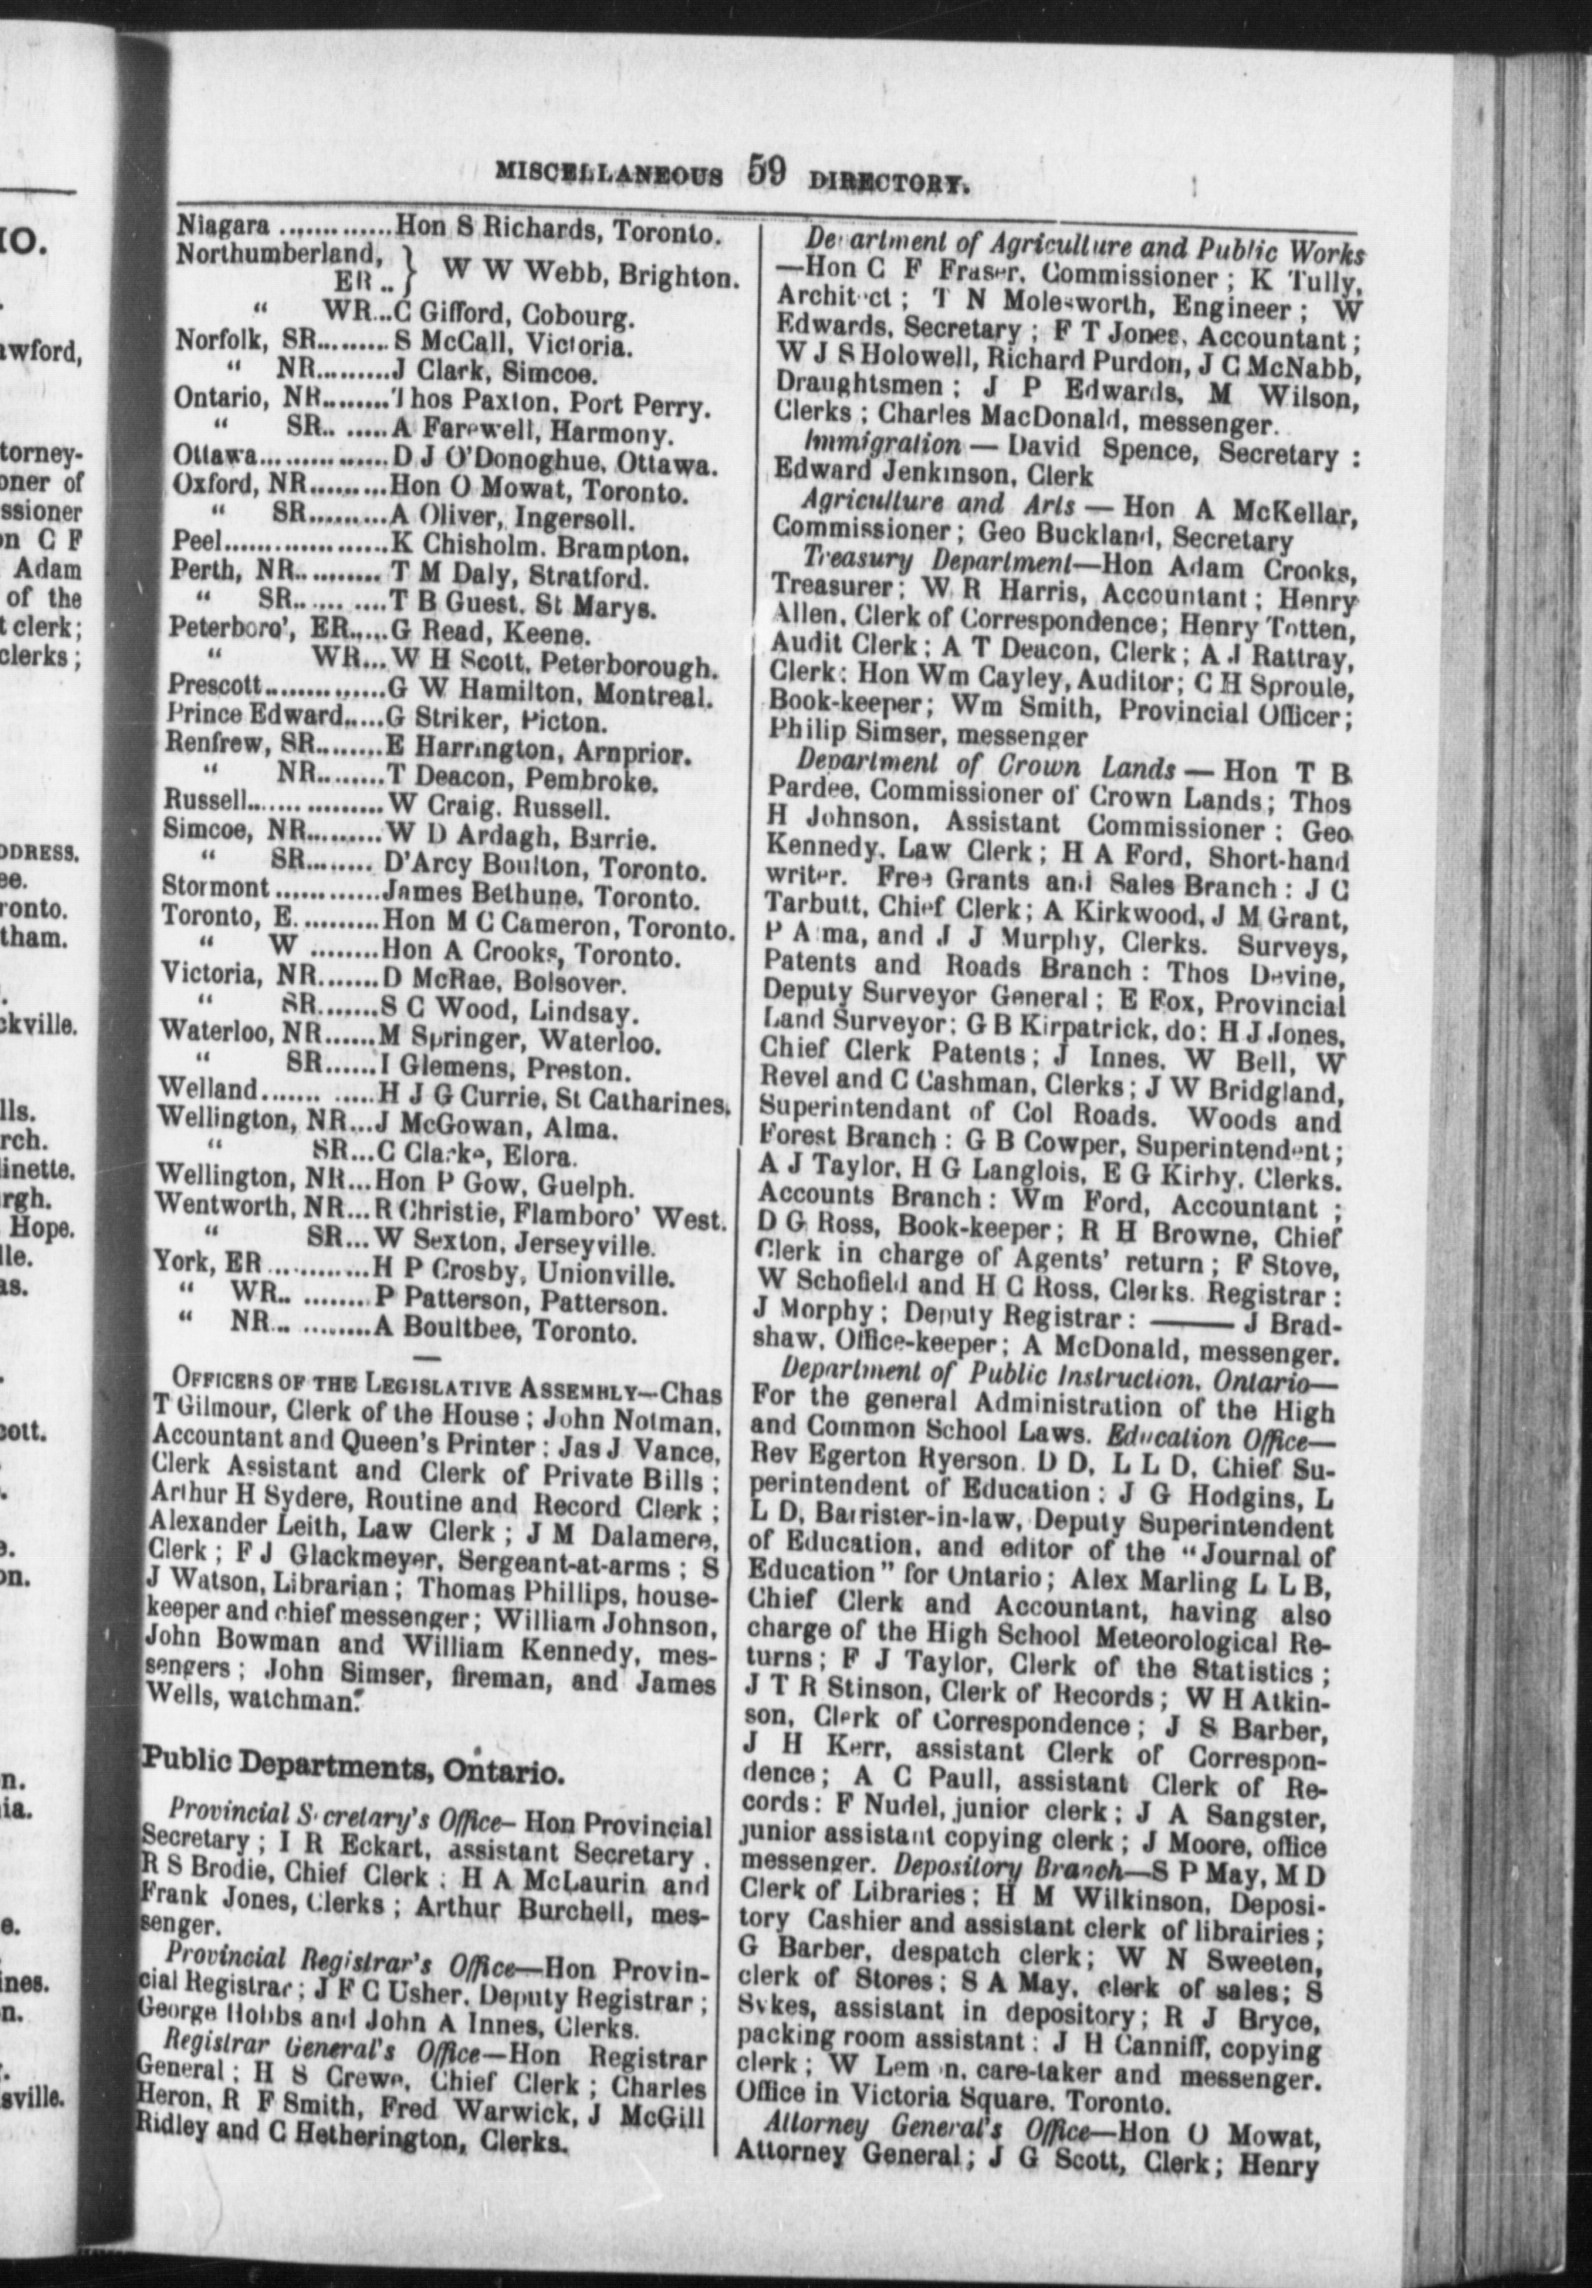 MISCELLANEOUS 59 DIRECTORY.
Niagara ............Hon S Richards, Toronto.
Northumberland, }
ER .. } W W Webb, Brighton.
" WR...C Gifford, Cobourg.
Norfolk, SR.........S McCall, Victoria.
" NR.........J Clark, Simcoe.
Ontario, NR........Thos Paxton, Port Perry.
" SR.. .....A Farewell, Harmony.
Ottawa................D J O'Donoghue, Ottawa.
Oxford, NR.........Hon O Mowat, Toronto.
" SR.........A Oliver, Ingersoll.
Peel...................K Chisholm. Brampton.
Perth, NR.......... T M Daly, Stratford.
" SR...... ....T B Guest. St Marys.
Peterboro', ER.....G Read, Keene.
" WR...W H Scott, Peterborough.
Prescott..............G W Hamilton, Montreal.
Prince Edward.....G Striker, Picton.
Renfrew, SR........E Harrington, Arnprior.
" NR........T Deacon, Pembroke.
Russell................W Craig. Russell.
Simcoe, NR.........W D Ardagh, Barrie.
" SR........ D'Arcy Boulton, Toronto.
Stormont ............James Bethune, Toronto.
Toronto, E..........Hon M C Cameron, Toronto.
" W ........Hon A Crooks, Toronto.
Victoria, NR.......D McRae, Bolsover.
" SR.......S C Wood, Lindsay.
Waterloo, NR......M Springer, Waterloo.
" SR......I Glemens, Preston.
Welland....... .....H J G Currie, St Catharines.
Wellington, NR...J McGowan, Alma.
" SR...C Clarke, Elora.
Wellington, NR...Hon P Gow, Guelph.
Wentworth, NR...R Christie, Flamboro' West.
" SR...W Sexton, Jerseyville.
York, ER ............H P Crosby, Unionville.
" WR.. ........P Patterson, Patterson.
" NR... .........A Boultbee, Toronto.
OFFICERS OF THE LEGISLATIVE ASSEMBLY—Chas
T Gilmour, Clerk of the House ; John Notman,
Accountant and Queen's Printer ; Jas J Vance,
Clerk Assistant and Clerk of Private Bills ;
Arthur H Sydere, Routine and Record Clerk ;
Alexander Leith, Law Clerk ; J M Dalamere,
Clerk ; F J Glackmeyer, Sergeant-at-arms ; S
J Watson, Librarian ; Thomas Phillips, house-
keeper and chief messenger ; William Johnson,
John Bowman and William Kennedy, mes-
sengers ; John Simser, fireman, and James
Wells, watchman.
Public Departments, Ontario.
Provincial Secretary's Office— Hon Provincial
Secretary ; I R Eckart, assistant Secretary .
R S Brodie, Chief Clerk ; H A McLaurin and
Frank Jones, Clerks ; Arthur Burchell, mes-
senger.
Provincial Registrar's Office—Hon Provin-
cial Registrar ; J F C Usher, Deputy Registrar ;
George Hobbs and John A Innes, Clerks.
Registrar General's Office—Hon Registrar
General ; H S Crewe, Chief Clerk ; Charles
Heron, R F Smith, Fred Warwick, J McGill
Ridley and C Hetherington, Clerks.
Department of Agriculture and Public Works
—Hon C F Fraser, Commissioner ; K Tully,
Architect ; T N Molesworth, Engineer ; W
Edwards, Secretary ; F T Jones, Accountant ;
W J S Holowell, Richard Purdon, J C McNabb,
Draughtsmen ; J P Edwards, M Wilson,
Clerks ; Charles MacDonald, messenger.
Immigration — David Spence, Secretary :
Edward Jenkinson, Clerk
Agriculture and Arts — Hon A McKellar,
Commissioner ; Geo Buckland, Secretary
Treasury Department—Hon Adam Crooks,
Treasurer ; W R Harris, Accountant ; Henry
Allen, Clerk of Correspondence ; Henry Totten,
Audit Clerk ; A T Deacon, Clerk ; A J Rattray,
Clerk ; Hon Wm Cayley, Auditor ; C H Sproule,
Book-keeper ; Wm Smith, Provincial Officer ;
Philip Simser, messenger
Department of Crown Lands — Hon T B
Pardee, Commissioner of Crown Lands ; Thos
H Johnson, Assistant Commissioner ; Geo
Kennedy, Law Clerk ; H A Ford, Short-hand
writer. Free Grants and Sales Branch : J C
Tarbutt, Chief Clerk ; A Kirkwood, J M Grant,
P and J J Murphy, Clerks. Surveys,
Patents and Roads Branch : Thos Devine,
Deputy Surveyor General ; E Fox, Provincial
Land Surveyor ; G B Kirpatrick, do ; H J Jones,
Chief Clerk Patents ; J Innes, W Bell, W
Revel and C Cashman, Clerks ; J W Bridgland,
Superintendant of Col Roads. Woods and
Forest Branch : G B Cowper, Superintendent ;
A J Taylor, H G Langlois, E G Kirby, Clerks.
Accounts Branch : Wm Ford, Accountant ;
D G Ross, Book-keeper ; R H Browne, Chief
Clerk in charge of Agents' return ; F Stove,
W Schofield and H C Ross, Clerks. Registrar :
J Morphy ; Deputy Registrar : —— J Brad-
shaw, Office-keeper ; A McDonald, messenger.
Department of Public Instruction, Ontario—
For the general Administration of the High
and Common School Laws. Education Office—
Rev Egerton Ryerson. D D, L L D, Chief Su-
perintendent of Education ; J G Hodgins, L
L D, Barrister-in-law, Deputy Superintendent
of Education, and editor of the "Journal of
Education" for Ontario ; Alex Marling L L B,
Chief Clerk and Accountant, having also
charge of the High School Meteorological Re-
turns ; F J Taylor, Clerk of the Statistics ;
J T R Stinson, Clerk of Records ; W H Atkin-
son, Clerk of Correspondence ; J S Barber,
J H Kerr, assistant Clerk of Correspon-
dence ; A C Paull, assistant Clerk of Re-
cords : F Nudel, junior clerk ; J A Sangster,
junior assistant copying clerk ; J Moore, office
messenger. Depository Branch—S P May, M D
Clerk of Libraries ; H M Wilkinson, Deposi-
tory Cashier and assistant clerk of librairies ;
G Barber, despatch clerk ; W N Sweeten,
clerk of Stores ; S A May, clerk of sales ; S
Sykes, assistant in depository ; R J Bryce,
packing room assistant : J H Canniff, copying
clerk ; W Lemon, care-taker and messenger.
Office in Victoria Square, Toronto.
Attorney General's Office—Hon O Mowat,
Attorney General ; J G Scott, Clerk ; Henry